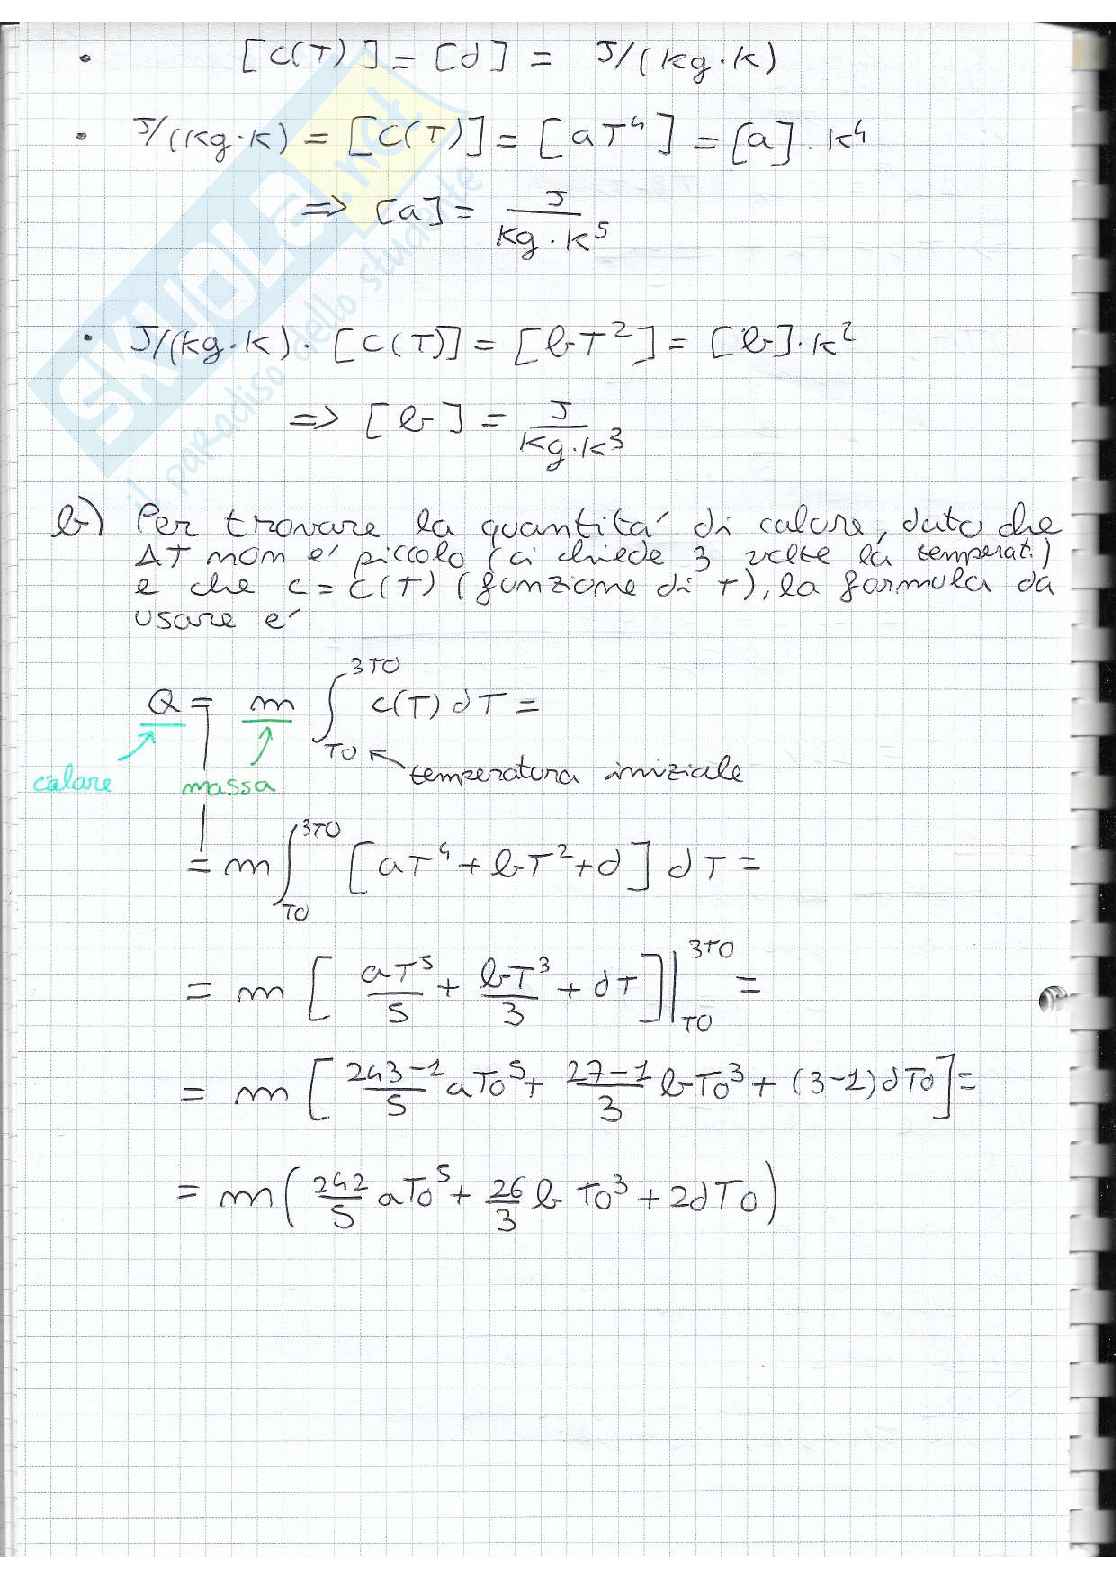 • [C(T)] = [d] = J/(kg·K)
• J/(kg·K) = [C(T)] = [aT⁴] = [a]·K⁴
=> [a] = J/(kg·K⁵)
• J/(kg·K)·[C(T)] = [bT²] = [b]·K²
=> [b] = J/(kg·K³)
b) Per trovare la quantitá di calore, dato che
ΔT non é piccolo (ci chiede 3 volte la temperat.)
e che c = c(T) (funzione di T), la formula da
usare é
Q = m ∫_{T0}^{3T0} c(T) dT =
temperatura iniziale
calore massa
= m ∫_{T0}^{3T0} [aT⁴ + bT² + d] dT =
= m [aT⁵/5 + bT³/3 + dT] |_{T0}^{3T0} =
= m [(243-1)/5 aT0⁵ + (27-1)/3 bT0³ + (3-1)dT0] =
= m (242/5 aT0⁵ + 26/3 b T0³ + 2dT0)
SKUOLA.net
il paradiso dello studente